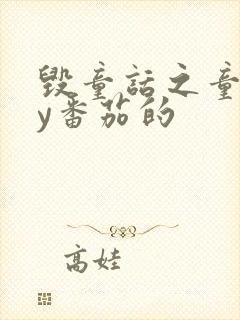 毁童话之童
y番茄的
高娃